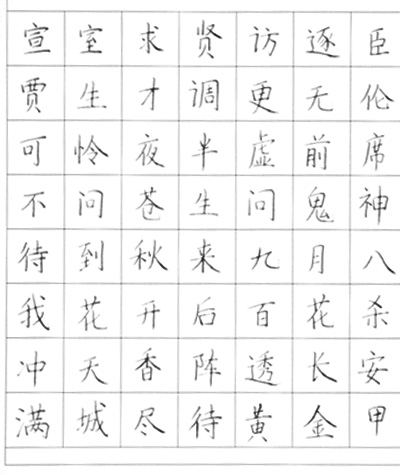 宣室求贤访逐臣
贾生才调更无伦
可怜夜半虚前席
不问苍生问鬼神
待到秋来九月八
我花开后百花杀
冲天香阵透长安
满城尽待黄金甲